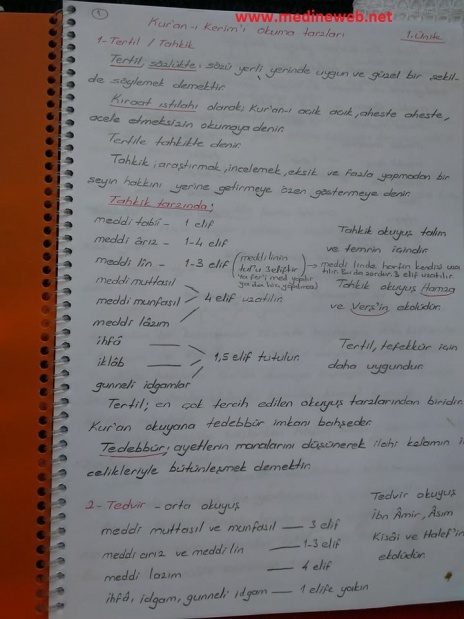 www.medineweb.net
1
Kur'an-ı Kerim'i okuma tarzları
1-Ünite
1-Tertil / Tahkik
Tertil, sözlükte; sözü yerli yerinde uygun ve güzel bir şekil-
de söylemek demektir.
Kıraat ıstılahı olarak; Kur'an-ı açık açık, aheste aheste,
acele etmeksizin okumaya denir.
Tertile tahkikte denir.
Tahkik; araştırmak, incelemek, eksik ve fazla yapmadan bir
şeyin hakkını yerine getirmeye özen göstermeye denir.
Tahkik tarzında;
meddi tabii - 1 elif
meddi ârız - 1-4 elif
meddi lin - 1-3 elif
(meddi linin
tul'u 3 eliftir
→ medde linde harfin kendisi uza
tılır. 3 elif uzatılır.
meddi muttasıl
meddi munfasıl > 4 elif uzatılır.
meddi lâzım
Tahkik okuyuş talim
ve temrin içindir
Tahkik okuyuş Hamza
ve Verş'in ekolüdür.
ihfâ
iklâb > 1,5 elif tutulur.
gunneli idgamlar
Tertil, tefekkür için
daha uygundur.
Tertil; en çok tercih edilen okuyuş tarzlarından biridir.
Kur'an okuyana tedebbür imkanı bahşeder.
Tedebbür; ayetlerin manalarını düşünerek ilahi kelamın i
celikleriyle bütünleşmek demektir.
2- Tedvir - orta okuyuş
meddi muttasıl ve munfasıl — 3 elif
meddi arız ve meddi lin — 1-3 elif
meddi lazım — 4 elif
ihfâ, idgam, gunneli idgam — 1 elife yakın
Tedvir okuyuş
İbn Âmir, Âsım
Kisâi ve Halef'in
ekolüdür.